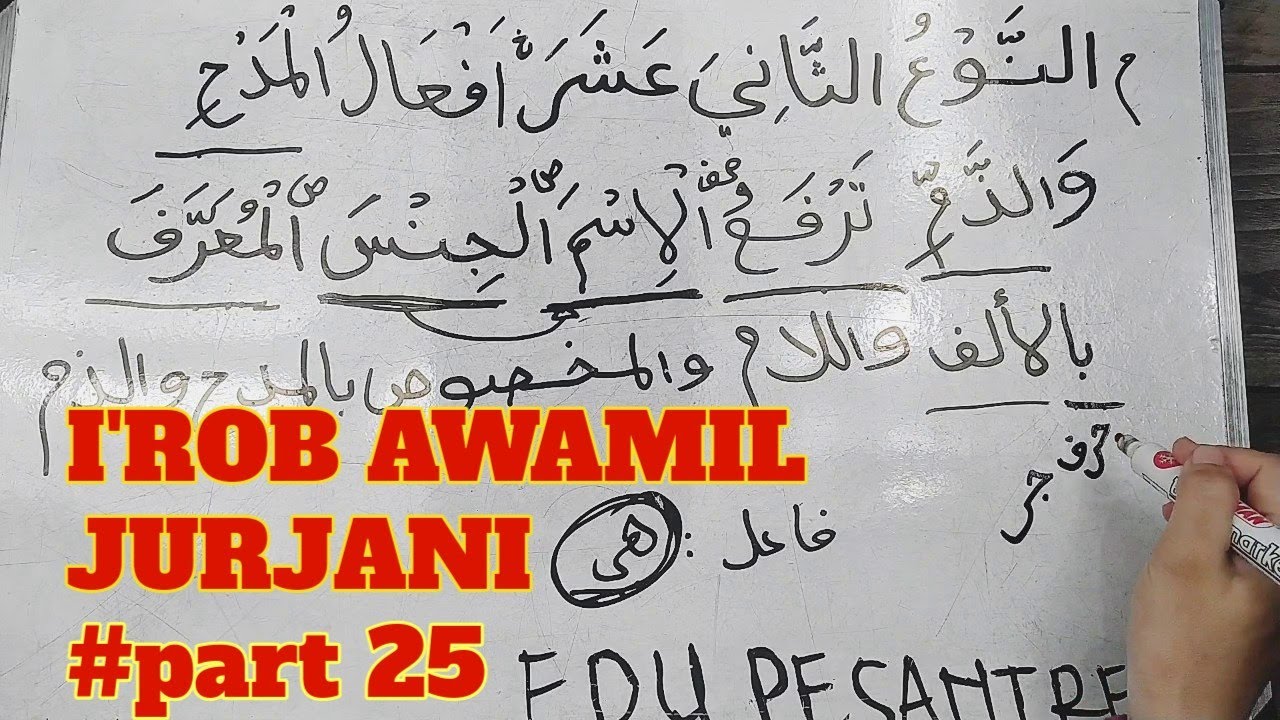 م النَّوْعُ الثَّانِيَ عَشَرَ أَفْعَالُ الْمَدْحِ
وَالذَّمِّ تَرْفَعُ الْاِسْمَ الْجِنْسَ الْمُعَرَّفَ
بالألف واللام والمخصوص بالمدح والذم
حرف
جر
فاعل : هي
I'ROB AWAMIL
JURJANI
#part 25
EDU PESANTRE